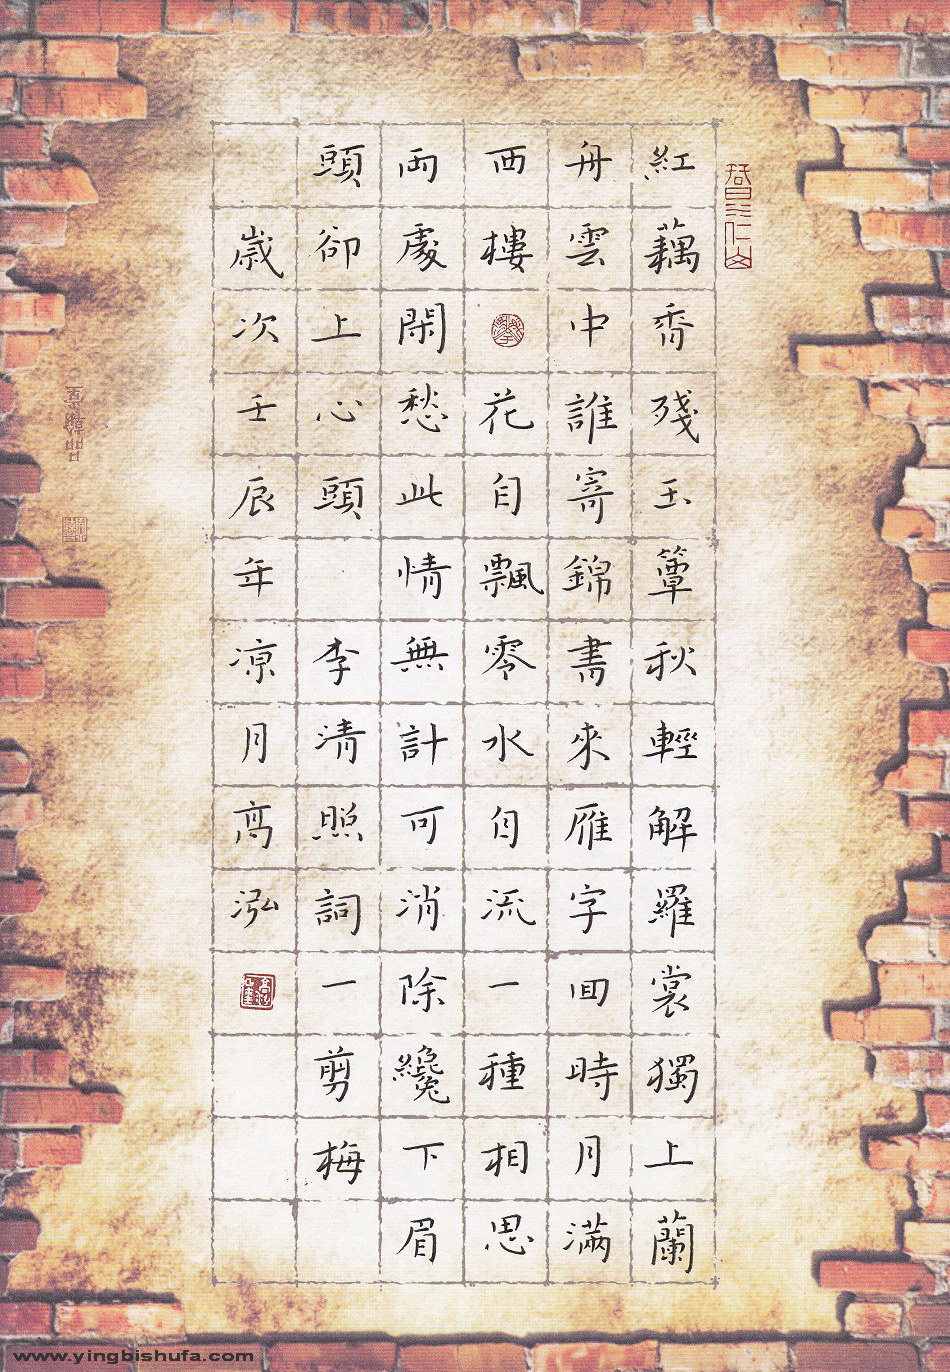 紅藕香殘玉簟秋輕解羅裳獨上蘭
舟雲中誰寄錦書來雁字回時月滿
西樓花自飄零水自流一種相思
兩處閑愁此情無計可消除纔下眉
頭卻上心頭 李清照詞一剪梅
歲次壬辰年涼月高泓
www.yingbishufa.com